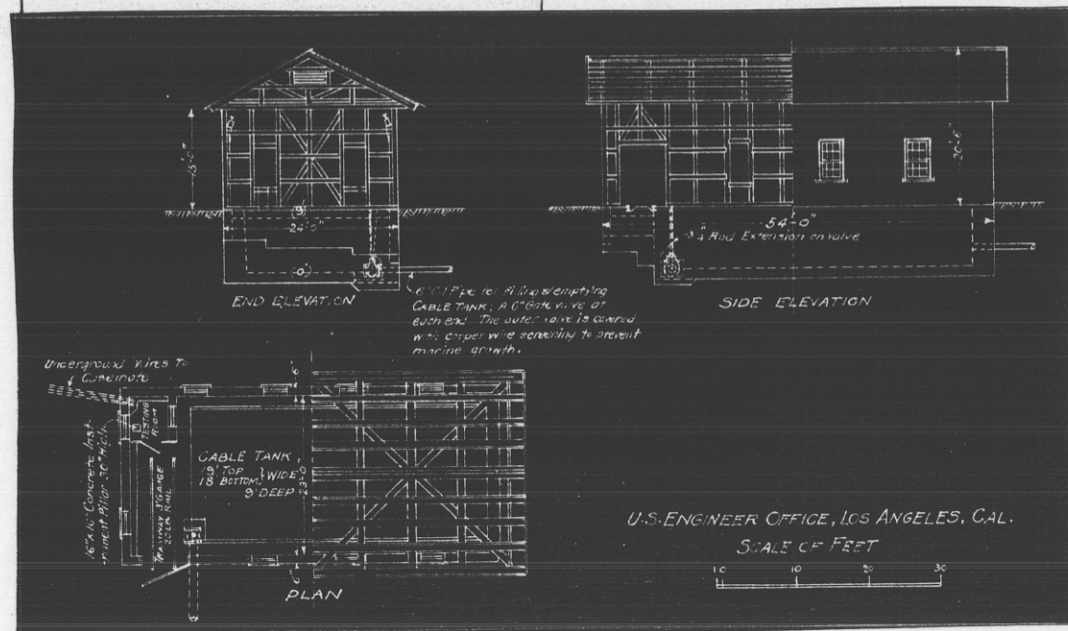 15'-0"
9'
24'-0"
0'
END ELEVATION
6" C.I. Pipe for filling & emptying
CABLE TANK; A 6" Gate valve at
each end. The outer valve is covered
with copper wire screening to prevent
marine growth.
20'-6"
54'-0"
3/4" Rod Extension on valve
SIDE ELEVATION
Underground Wires To
Casemate
TESTING
ROOM
16" x 16" Concrete Inst-
rument Pillar 30" High
TRAMWAY 3' GAUGE
20 LB. RAIL
CABLE TANK
19' TOP
18' BOTTOM } WIDE
9' DEEP
23'-0"
6"
6"
PLAN
U.S. ENGINEER OFFICE, LOS ANGELES, CAL.
SCALE OF FEET
10 0 10 20 30